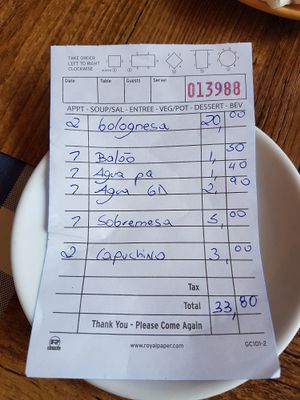 TAKE ORDER
LEFT TO RIGHT
CLOCKWISE
Date Table Guests Server 013988
APPT - SOUP/SAL - ENTREE - VEG/POT - DESSERT - BEV
2 bolognesa 20,00
1 Balão 1,50
1 Agua pq 1,40
1 Agua GD 2,90
1 Sobremesa 5,00
2 Capuchino 3,00
Tax
Total 33,80
Thank You - Please Come Again
www.royalpaper.com GC101-2